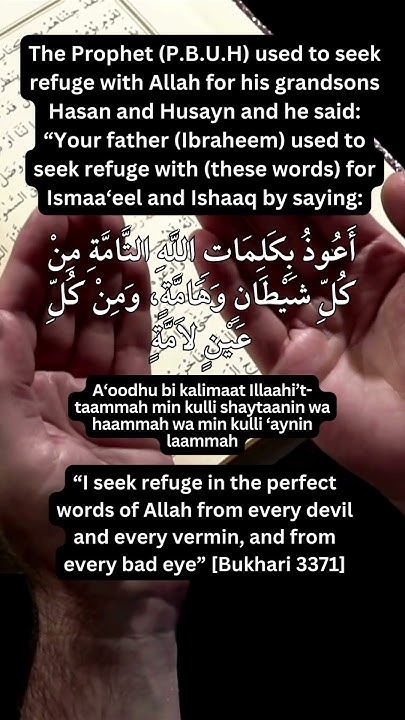 The Prophet (P.B.U.H) used to seek
refuge with Allah for his grandsons
Hasan and Husayn and he said:
“Your father (Ibraheem) used to
seek refuge with (these words) for
Ismaa‘eel and Ishaaq by saying:
أَعُوذُ بِكَلِمَاتِ اللَّهِ التَّامَّةِ مِنْ
كُلِّ شَيْطَانٍ وَهَامَّةٍ، وَمِنْ كُلِّ
عَيْنٍ لاَمَّةٍ
A‘oodhu bi kalimaat Illaahi’t-
taammah min kulli shaytaanin wa
haammah wa min kulli ‘aynin
laammah
“I seek refuge in the perfect
words of Allah from every devil
and every vermin, and from
every bad eye” [Bukhari 3371]